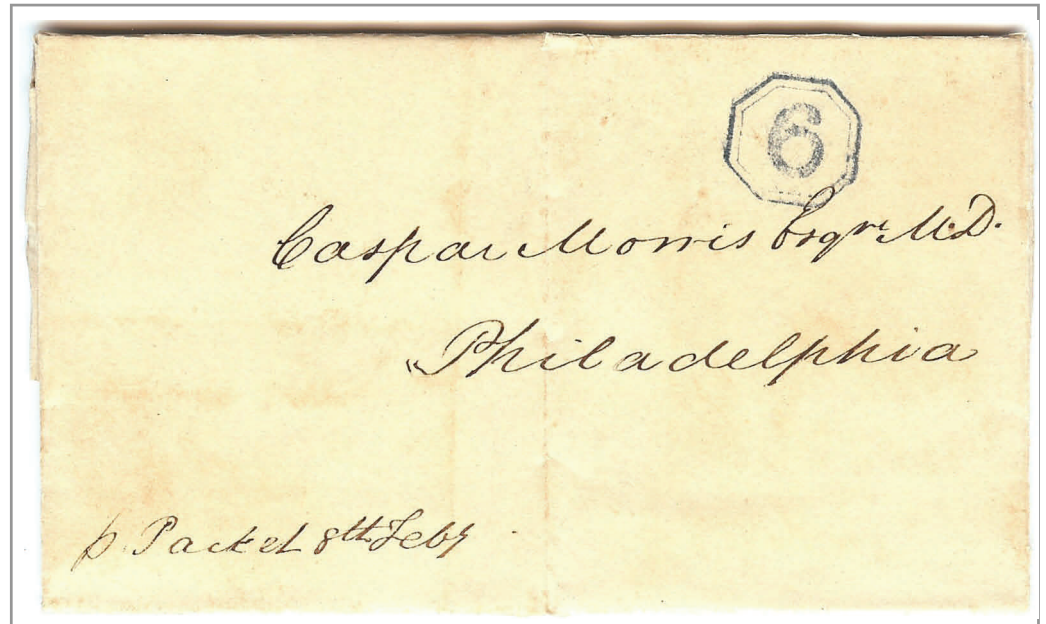 6
Caspar Morris Esqre M.D.
"Philadelphia
p. Packet 8th Feby